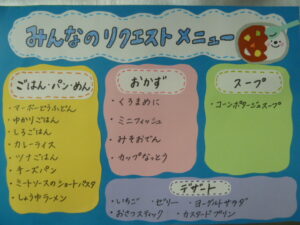 みんなのリクエストメニュー
ごはん・パン・めん
・マーボーどうふどん
・ゆかりごはん
・しろごはん
・カレーライス
・ツナごはん
・チーズパン
・ミートソースのショートパスタ
・しょうゆラーメン
おかず
・くろまめに
・ミニフィッシュ
・みそおでん
・カップなっとう
スープ
・コーンポタージュスープ
デザート
・いちご ・ゼリー ・ヨーグルトサラダ
・おさつスティック ・カスタードプリン